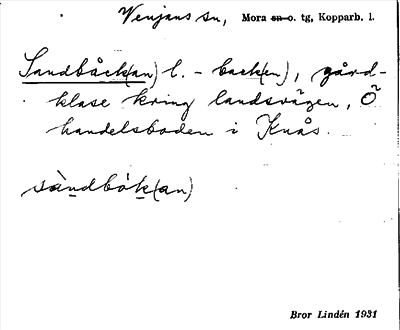 Venjans sn, Mora sn o. tg, Kopparb. l.
Sandbäck(an) l. - back(en), gård-
klase kring landsvägen, Ö
handelsboden i Knås.
sàndbók(an)
Bror Lindén 1931